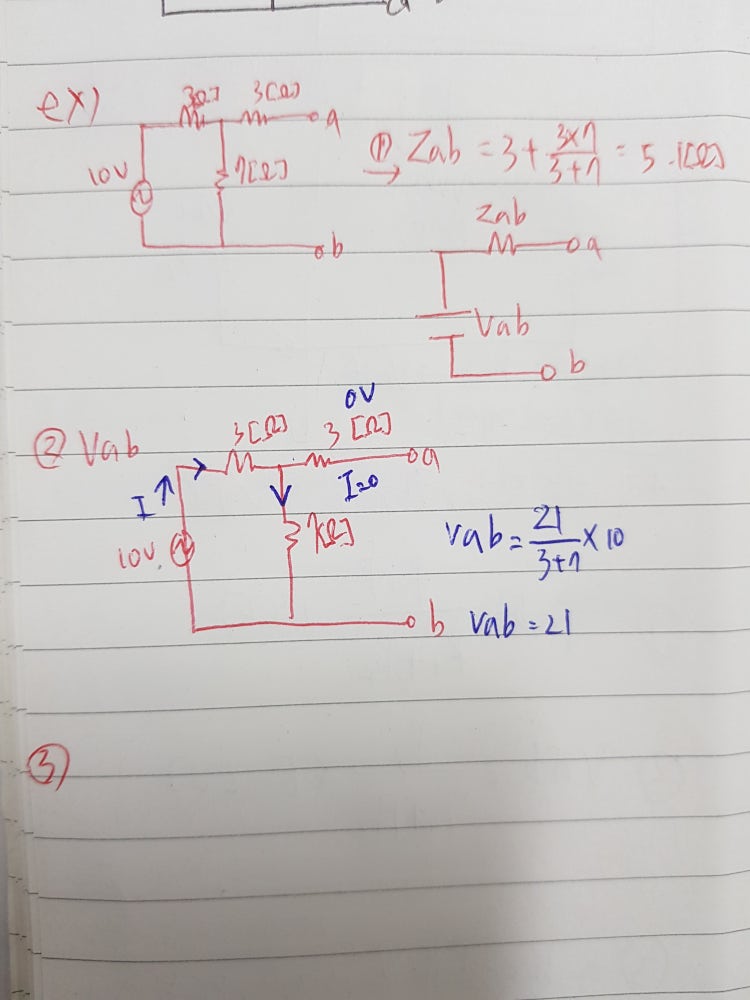 ex)
3[Ω] 3[Ω] a
① Zab = 3 + 3×7 / 3+7 = 5.1[Ω]
10V 7[Ω]
Zab
a
b
Vab
b
0V
② Vab 3[Ω] 3[Ω] a
I I=0
10V. 7[Ω] Vab = 21 / 3+7 × 10
b Vab = 21
③